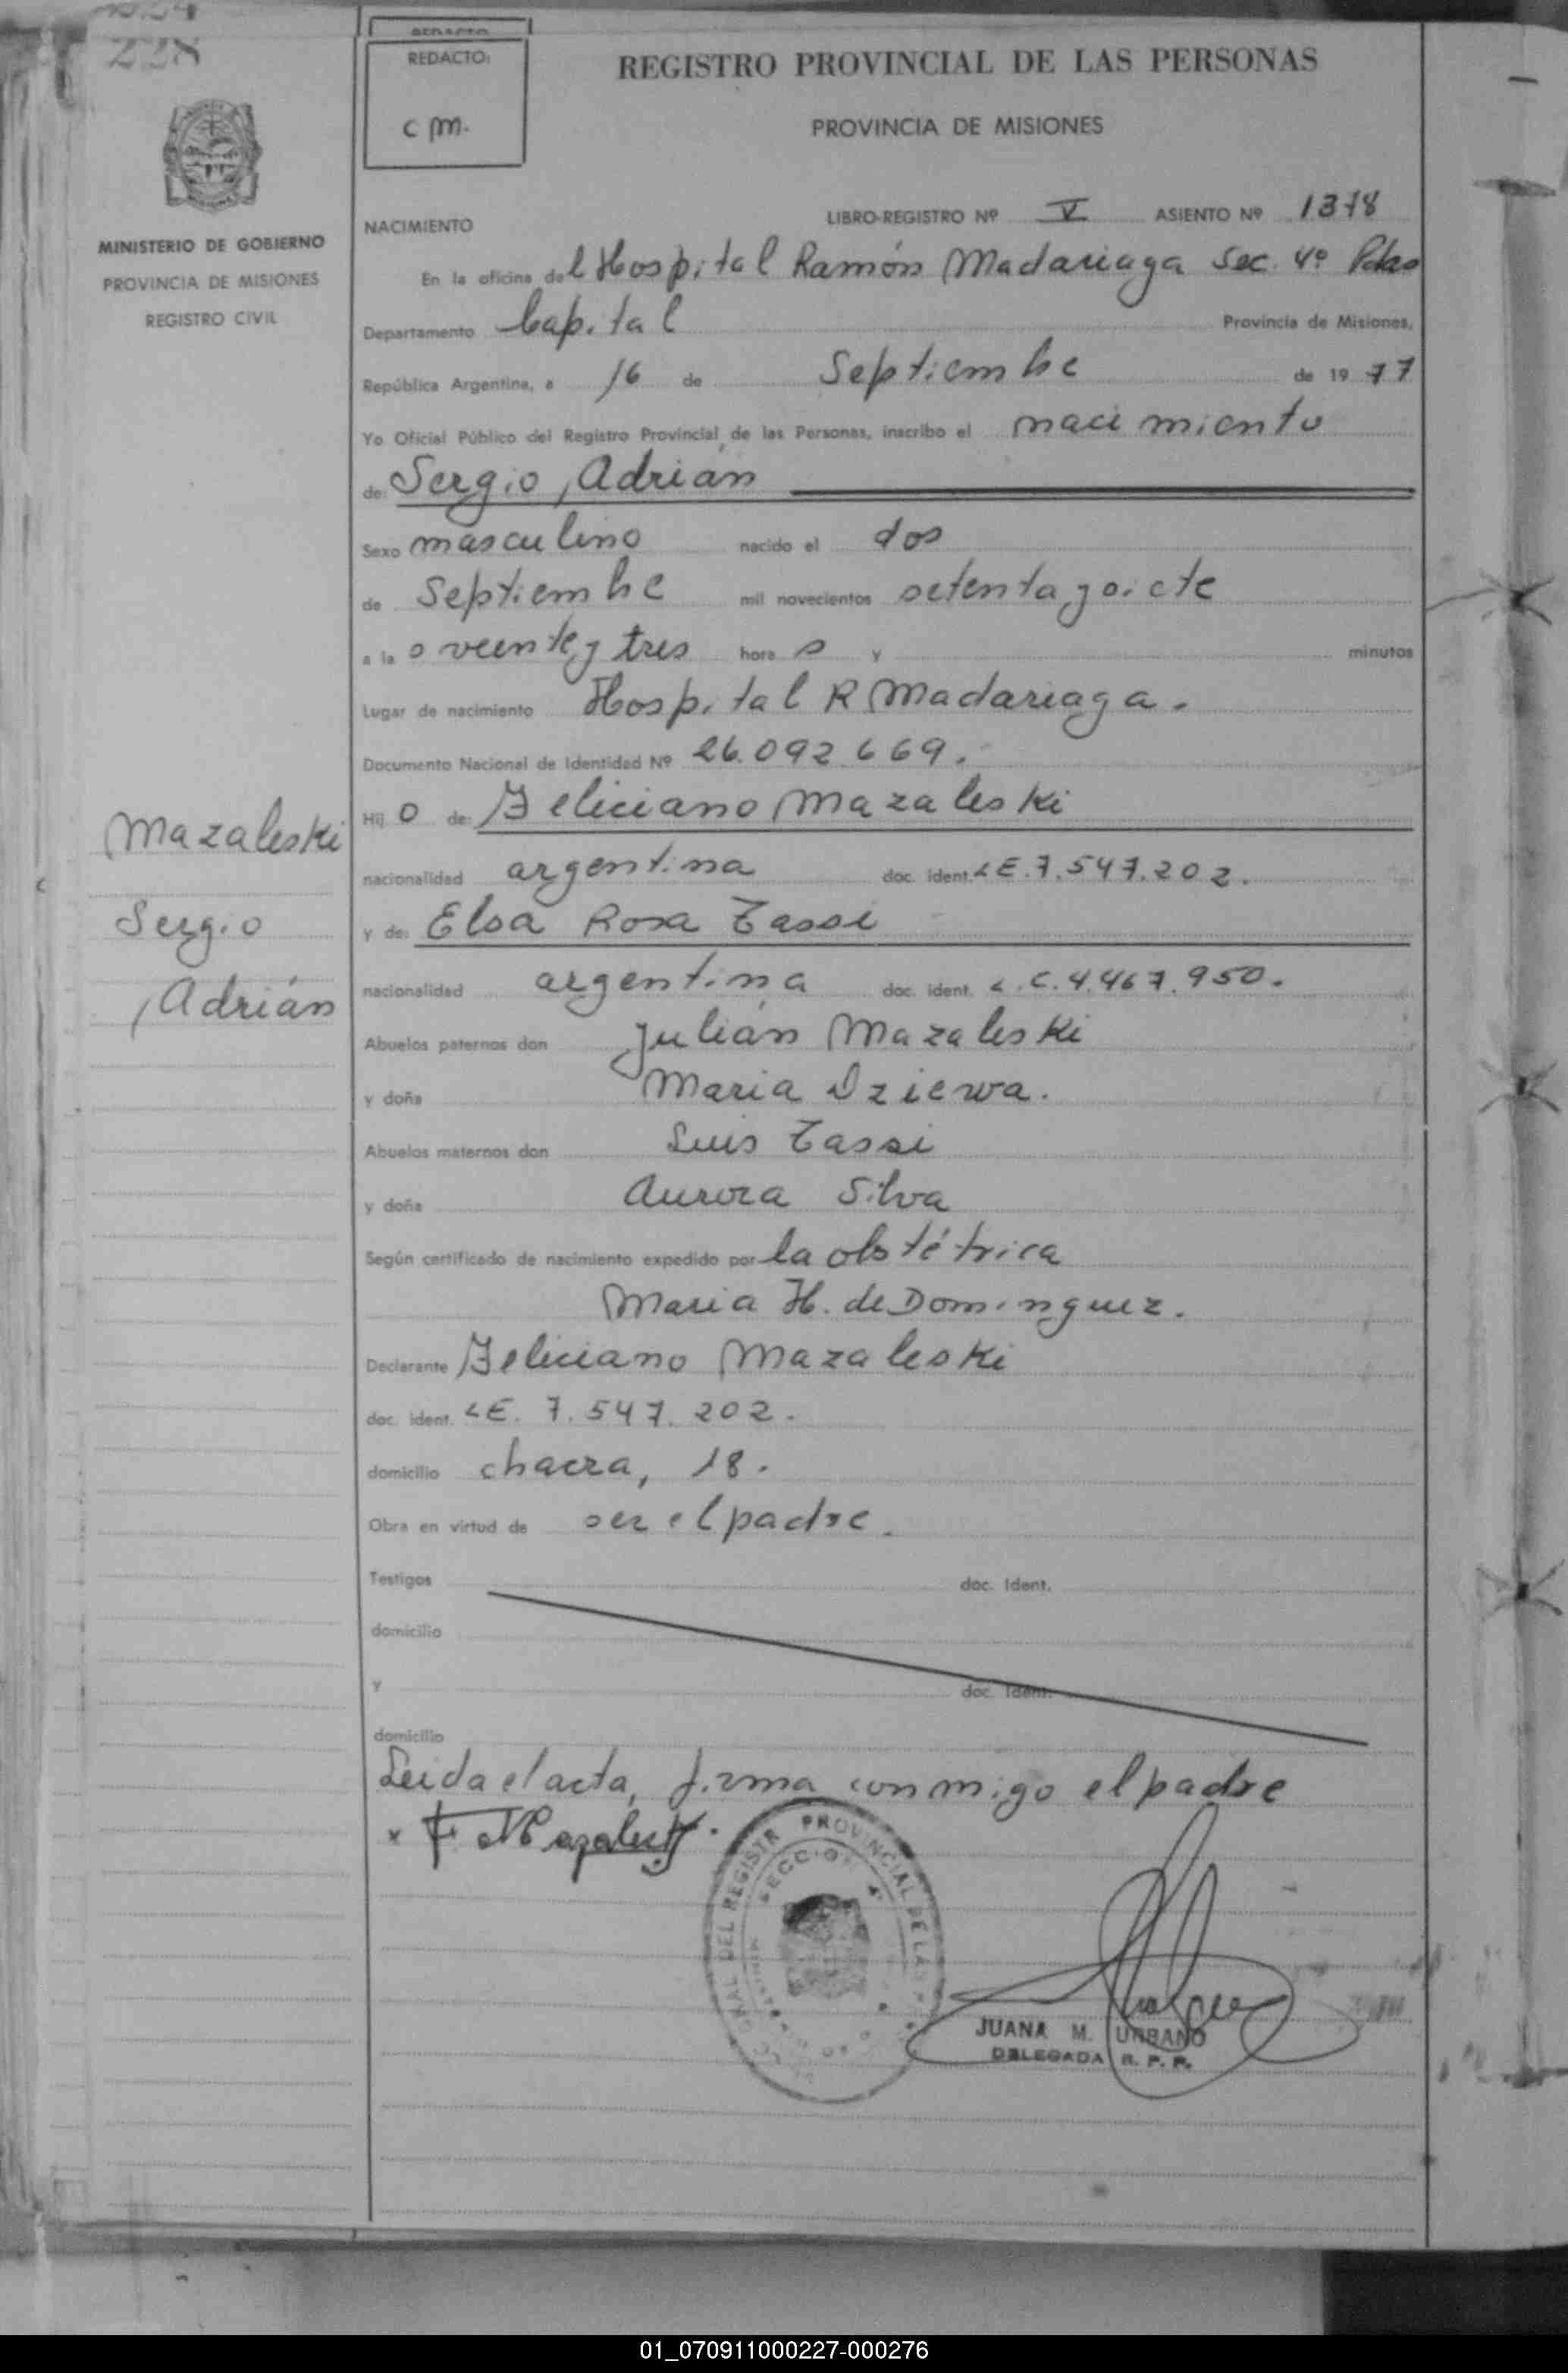 228
REDACTO:
c m.
REGISTRO PROVINCIAL DE LAS PERSONAS
PROVINCIA DE MISIONES
MINISTERIO DE GOBIERNO
PROVINCIA DE MISIONES
REGISTRO CIVIL
LIBRO-REGISTRO Nº V ASIENTO Nº 1378
NACIMIENTO
En la oficina del Hospital Ramón Madariaga Sec. 4º Pdas
Departamento Capital Provincia de Misiones,
República Argentina, a 16 de Septiembre de 1977
Yo Oficial Público del Registro Provincial de las Personas, inscribo el nacimiento
de: Sergio, Adrián
Sexo masculino nacido el dos
de Septiembre mil novecientos setenta y siete
a las veinte y tres horas y minutos
Lugar de nacimiento Hospital R Madariaga.
Documento Nacional de Identidad Nº 26.092.669.
Hijo de: Feliciano Mazaleski
nacionalidad argentina doc. ident. LE. 7.547.202.
y de: Elsa Rosa Tassi
nacionalidad argentina doc. ident. L.C. 4.467.950.
Abuelos paternos don Julián Mazaleski
y doña Maria Dziewa.
Abuelos maternos don Luis Tassi
y doña Aurora Silva
Según certificado de nacimiento expedido por la obstétrica
Maria H. de Dominguez.
Declarante Feliciano Mazaleski
doc. ident. LE. 7.547.202.
domicilio chacra, 18.
Obra en virtud de ser el padre.
Testigos doc. Ident.
domicilio
y doc. Ident.
domicilio
Leida el acta, firma conmigo el padre
x F Mazaleski.
Mazaleski
Sergio
, Adrián
DEL REGISTR PROVINCIAL DE LAS
SECCIO
JUANA M. URBANO
DELEGADA R. P. P.
01_070911000227-000276